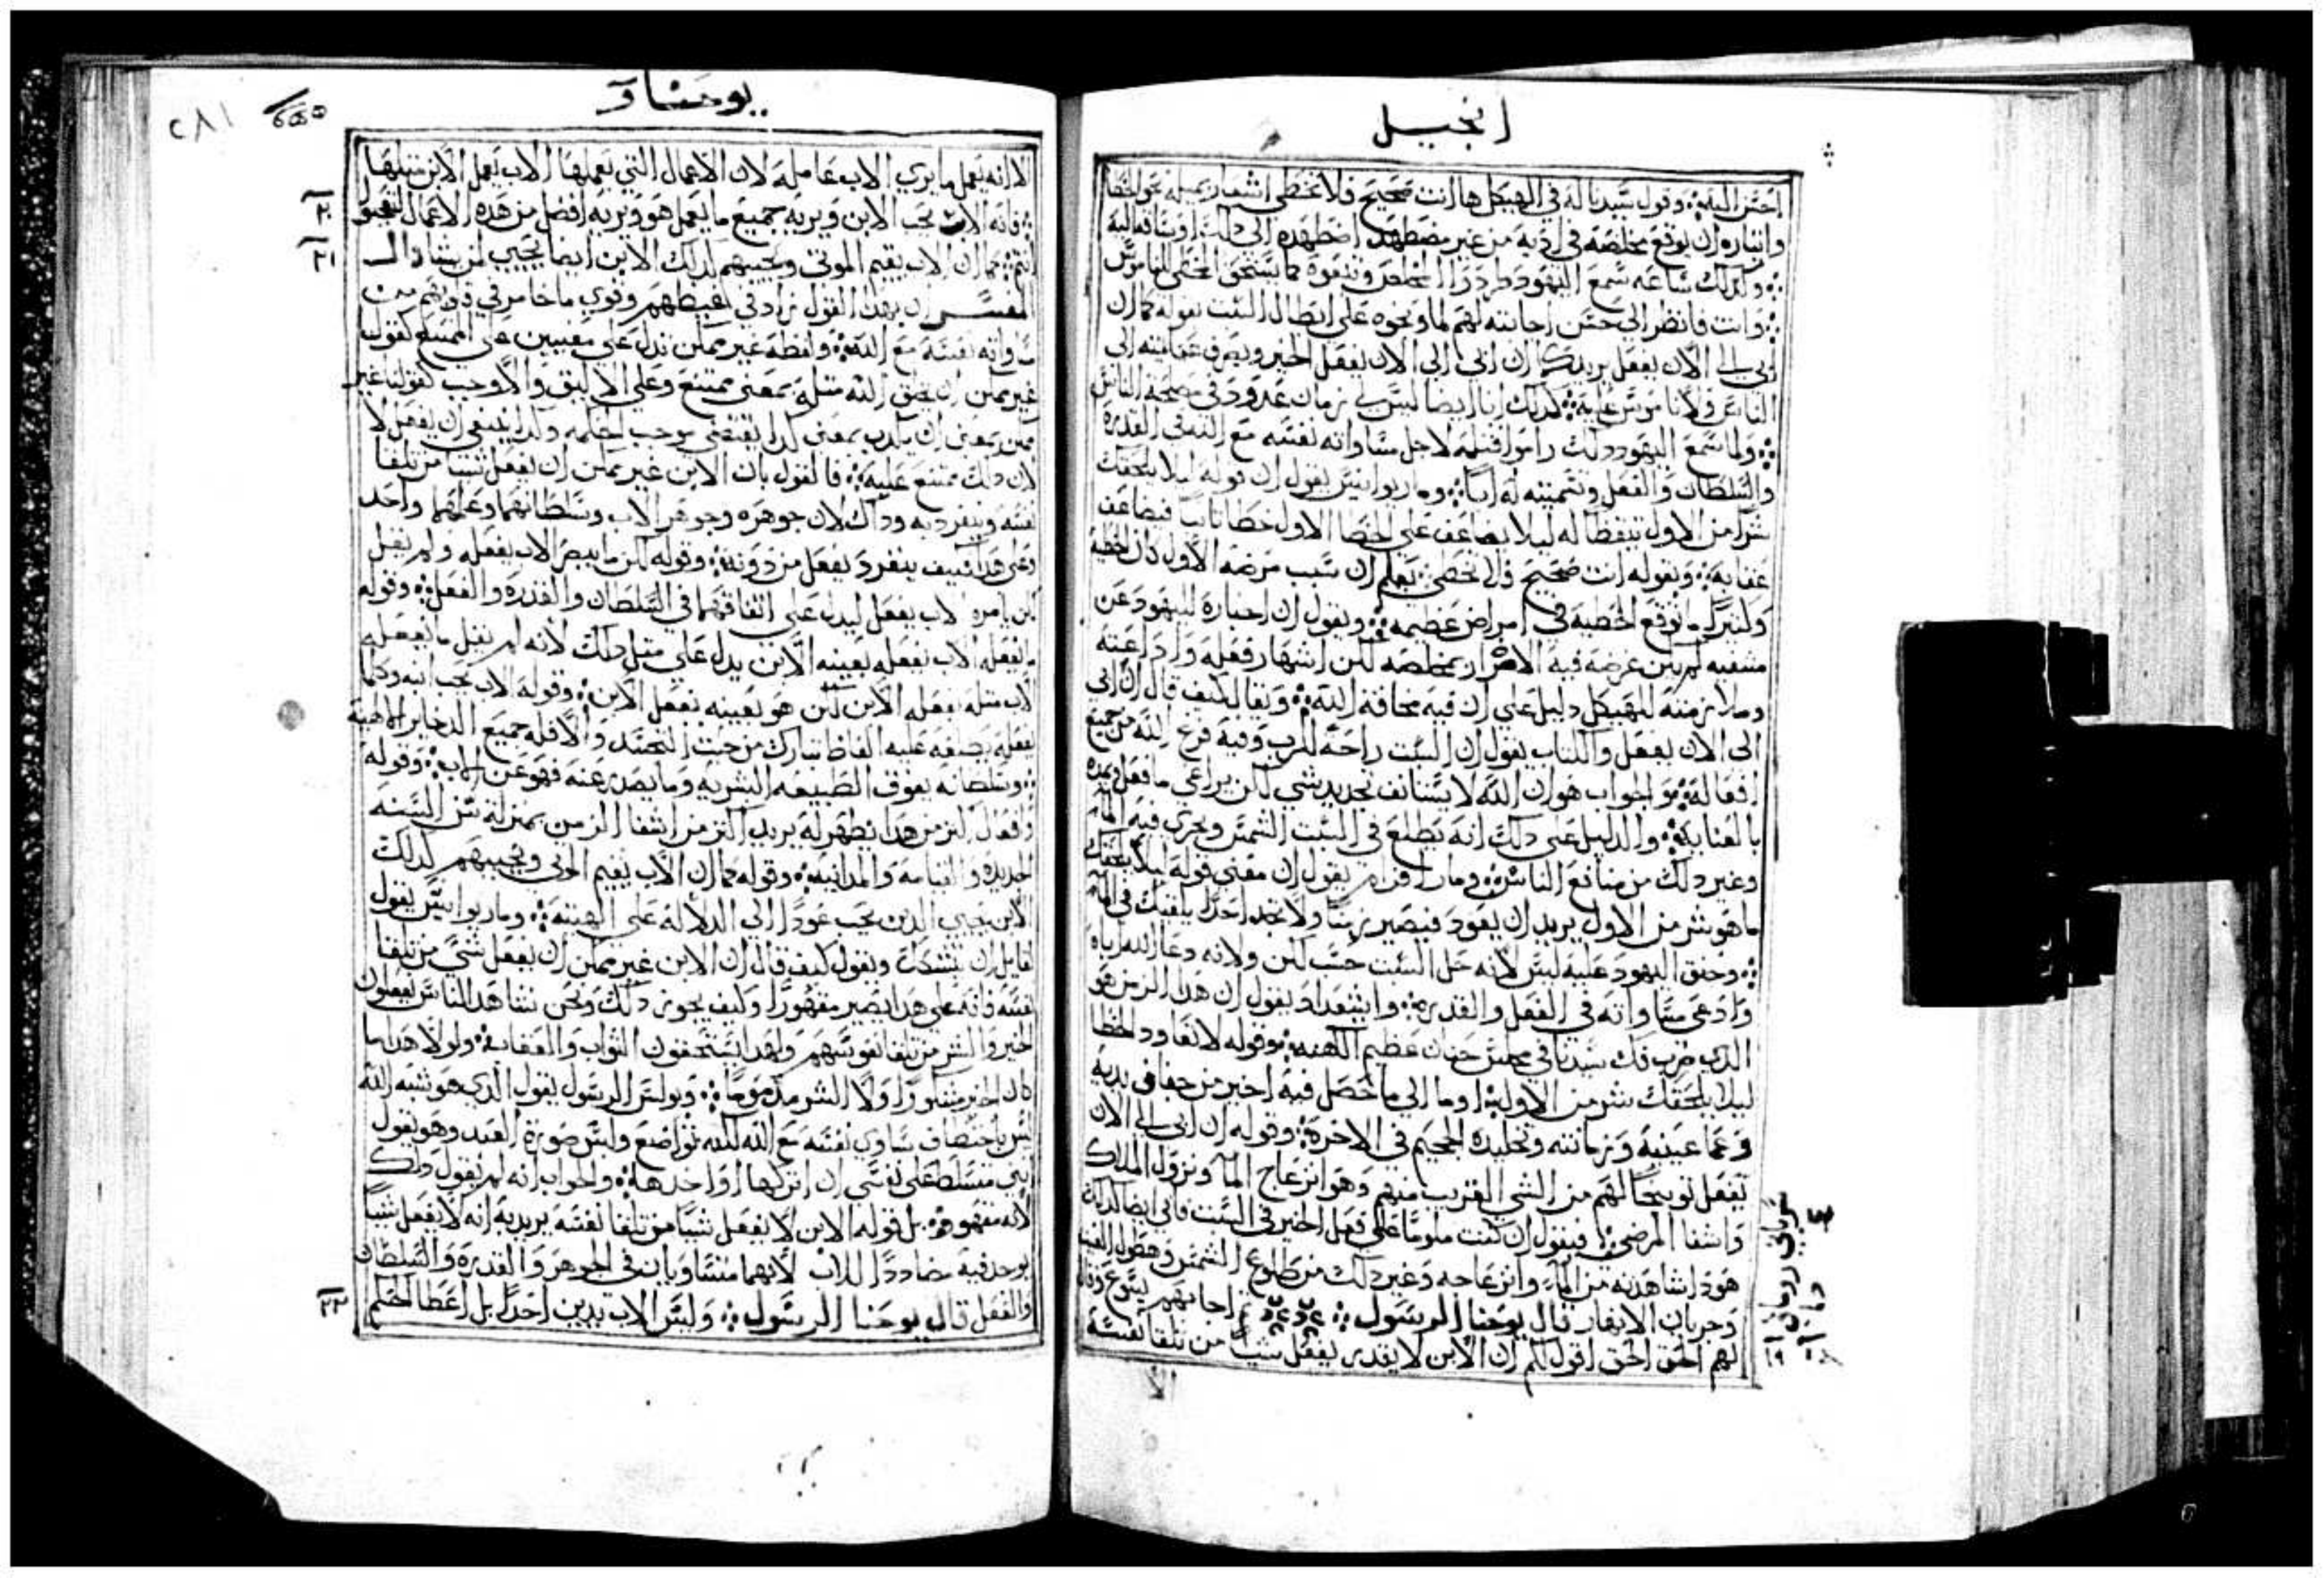 انجيل
احسن اليه ۞ وقول سيدنا له في الهيكل ها انت صحيح فلا تخطي
واثباره ان يوقع مخلصه في اذية من غير مضطهد اضطهده الى ذلك
وكذلك ساعه سمع اليهود
وانت فانظر الى حسن اجابته لهم على ابطال السبت بقوله كما ان
ابي الى الان يفعل يريد كما ان ابي الى الان يفعل الخير
الناس كذلك انا ايضا ليس لي زمان محدود في مصلحة الناس
ولما سمع اليهود ذلك راموا قتله لاجل مساواته نفسه مع الله في القدرة
والسلطان والفعل وتسميته له ابا ۞ ومار يوانيس يقول ان قوله ليلا يلحقك
شرا من الاول ليلا يضاعف على الخطا الاول خطا ثانيا فيضاعف
عقابه ۞ وبقوله انت صحيح فلا تخطي يعلم ان سبب مرضه الاول كان الخطية
ما توقع الخطية في امراض عظيمه ۞ ويقول ان اخباره لليهود عن
مشفيه لم يكن غرضه فيه الاضرار بمخلصه لكن اشهار فعله
وملازمته للهيكل دليل على ان فيه مخافة الله ۞ ويقال كيف قال ان ابي
الى الان يفعل والكتاب يقول ان السبت راحة للرب وفيه فرغ الله من جميع
افعاله ۞ والجواب هو ان الله لا يستانف تجديد شي لكن يراعي ما فعل
بالعناية ۞ والدليل على ذلك انه تطلع في السبت الشمس وتجري فيه المياه
وغير ذلك من منافع الناس ۞ ومار افرام يقول ان معنى قوله ليلا يلحقك
ما هو شر من الاول يريد ان يعود فيصير زمنا ولا تجد احدا يلقيك في الما
وحنق اليهود عليه ليس لانه حل السبت حسب لكن ولانه دعا الله اباه
وادعى مساواته في الفعل والقدرة ۞ يقول ان هذا الزمن هو
الذي ضرب فك سيدنا في مجلس حنان عظيم الكهنه ۞ وقوله لا تعاود الخطا
ليلا يلحقك شر من الاول اوما الى ما حصل فيه اخير من جفاف يديه
وعما عينيه وزمانته وتخليده الجحيم في الاخرة ۞ وقوله ان ابي الى الان
يفعل توبيخا لهم من الشي القريب منهم وهو انزعاج الما ونزول الملاك
واشفا المرضى ۞ فيقول ان كنت ملوما على فعل الخير في السبت فابي ايضا كذلك
هوذا شاهدته من الما وانزعاجه وغير ذلك من طلوع الشمس
وجريان الانهار قال يوحنا الرسول ۞ ثم اجابهم يسوع وقال
لهم الحق الحق اقول لكم ان الابن لا يقدر يفعل شيا من تلقا نفسه
الا
١٩
يوحنا
٢٨١
الا انه يعمل ما يري الاب عامله لان الاعمال التي يعملها الاب يعمل الابن مثلها
٢٠
فانه الاب يحب الابن ويريه جميع ما يعمل هو ويريه افضل من هذه الاعمال
٢١
انتم ۞ كما ان الاب يقيم الموتى ويحييهم كذلك الابن ايضا يحيي لمن يشا قال
المفسر ان بهذا القول زاد في غيظهم وقوي ما خامر في ذهنهم من
مساواته نفسه مع الله ۞ ولفظة غير ممكن تدل على معنيين على الممتنع كقولنا
غير ممكن ان يخلق الله مثله بمعنى ممتنع وعلى الاليق والاوجب كقولنا غير
ممكن بمعنى ان يكون بمعنى كذا يقتضي موجب الحكمه وكذا ينبغي ان يفعل لا
لان ذلك ممتنع عليه ۞ فالقول بان الابن غير ممكن ان يفعل شيا من تلقا
نفسه وينفرد به وذاك لان جوهره وجوهر الاب وسلطانهما وعملهما واحد
وعلى هذا كيف ينفرد بفعل من دونه ۞ وقوله لكن ما يبصر الاب يفعله ولم يقل
لكن يامره الاب يفعل ليدل على اتفاقهما في السلطان والقدره والفعل ۞ وقوله
ما يفعله الاب يفعله بعينه الابن يدل على مثل ذلك لانه لم يقل ما يفعله
الاب مثله يفعله الابن لكن هو بعينه يفعل الابن ۞ وقوله الاب يحب ابنه وكلما
يفعله من حيث التجسد والا فله جميع الذخاير الالهية
وسلطانه يفوق الطبيعه البشريه وما يصدر عنه فهو عن الاب ۞ وقوله
وافعال اكثر من هذا يظهر له يريد اكثر من اشفا الزمن بمنزلة سن السنه
الجديده والقيامة والمداينة ۞ وقوله كما ان الاب يقيم الموتى ويحييهم كذلك
الابن يحيي الذين يحب عودا الى الدلالة على الهيته ۞ ومار يوانيس يقول
لقايل ان يتشكك ويقول كيف قال ان الابن غير ممكن ان يفعل شي من تلقا
نفسه فانه على هذا يصير مقهورا وكيف يجوز ذلك ونحن نشاهد الناس يفعلون
الخير والشر من تلقا نفوسهم ولهذا يستحقون الثواب والعقاب ۞ ولولا هذا لما
كان الخير مشكورا ولا الشر مذموما ۞ وبولس الرسول يقول الذي هو شبه الله
ليس باختطاف ساوى نفسه مع الله لكنه تواضع ولبس صورة العبد وهو يقول
انني متسلط على نفسي ان اتركها او اخذها ۞ والجواب انه لم يقول ذلك
لانه مقهور ۞ بل قوله الابن لا يفعل شيا من تلقا نفسه يريد به انه لا يفعل شيا
يوجد فيه مضاددا للاب لانهما متساويان في الجوهر والقدرة والسلطان
٢٢
والفعل قال يوحنا الرسول ۞ وليس الاب يدين احدا بل اعطا الحكم